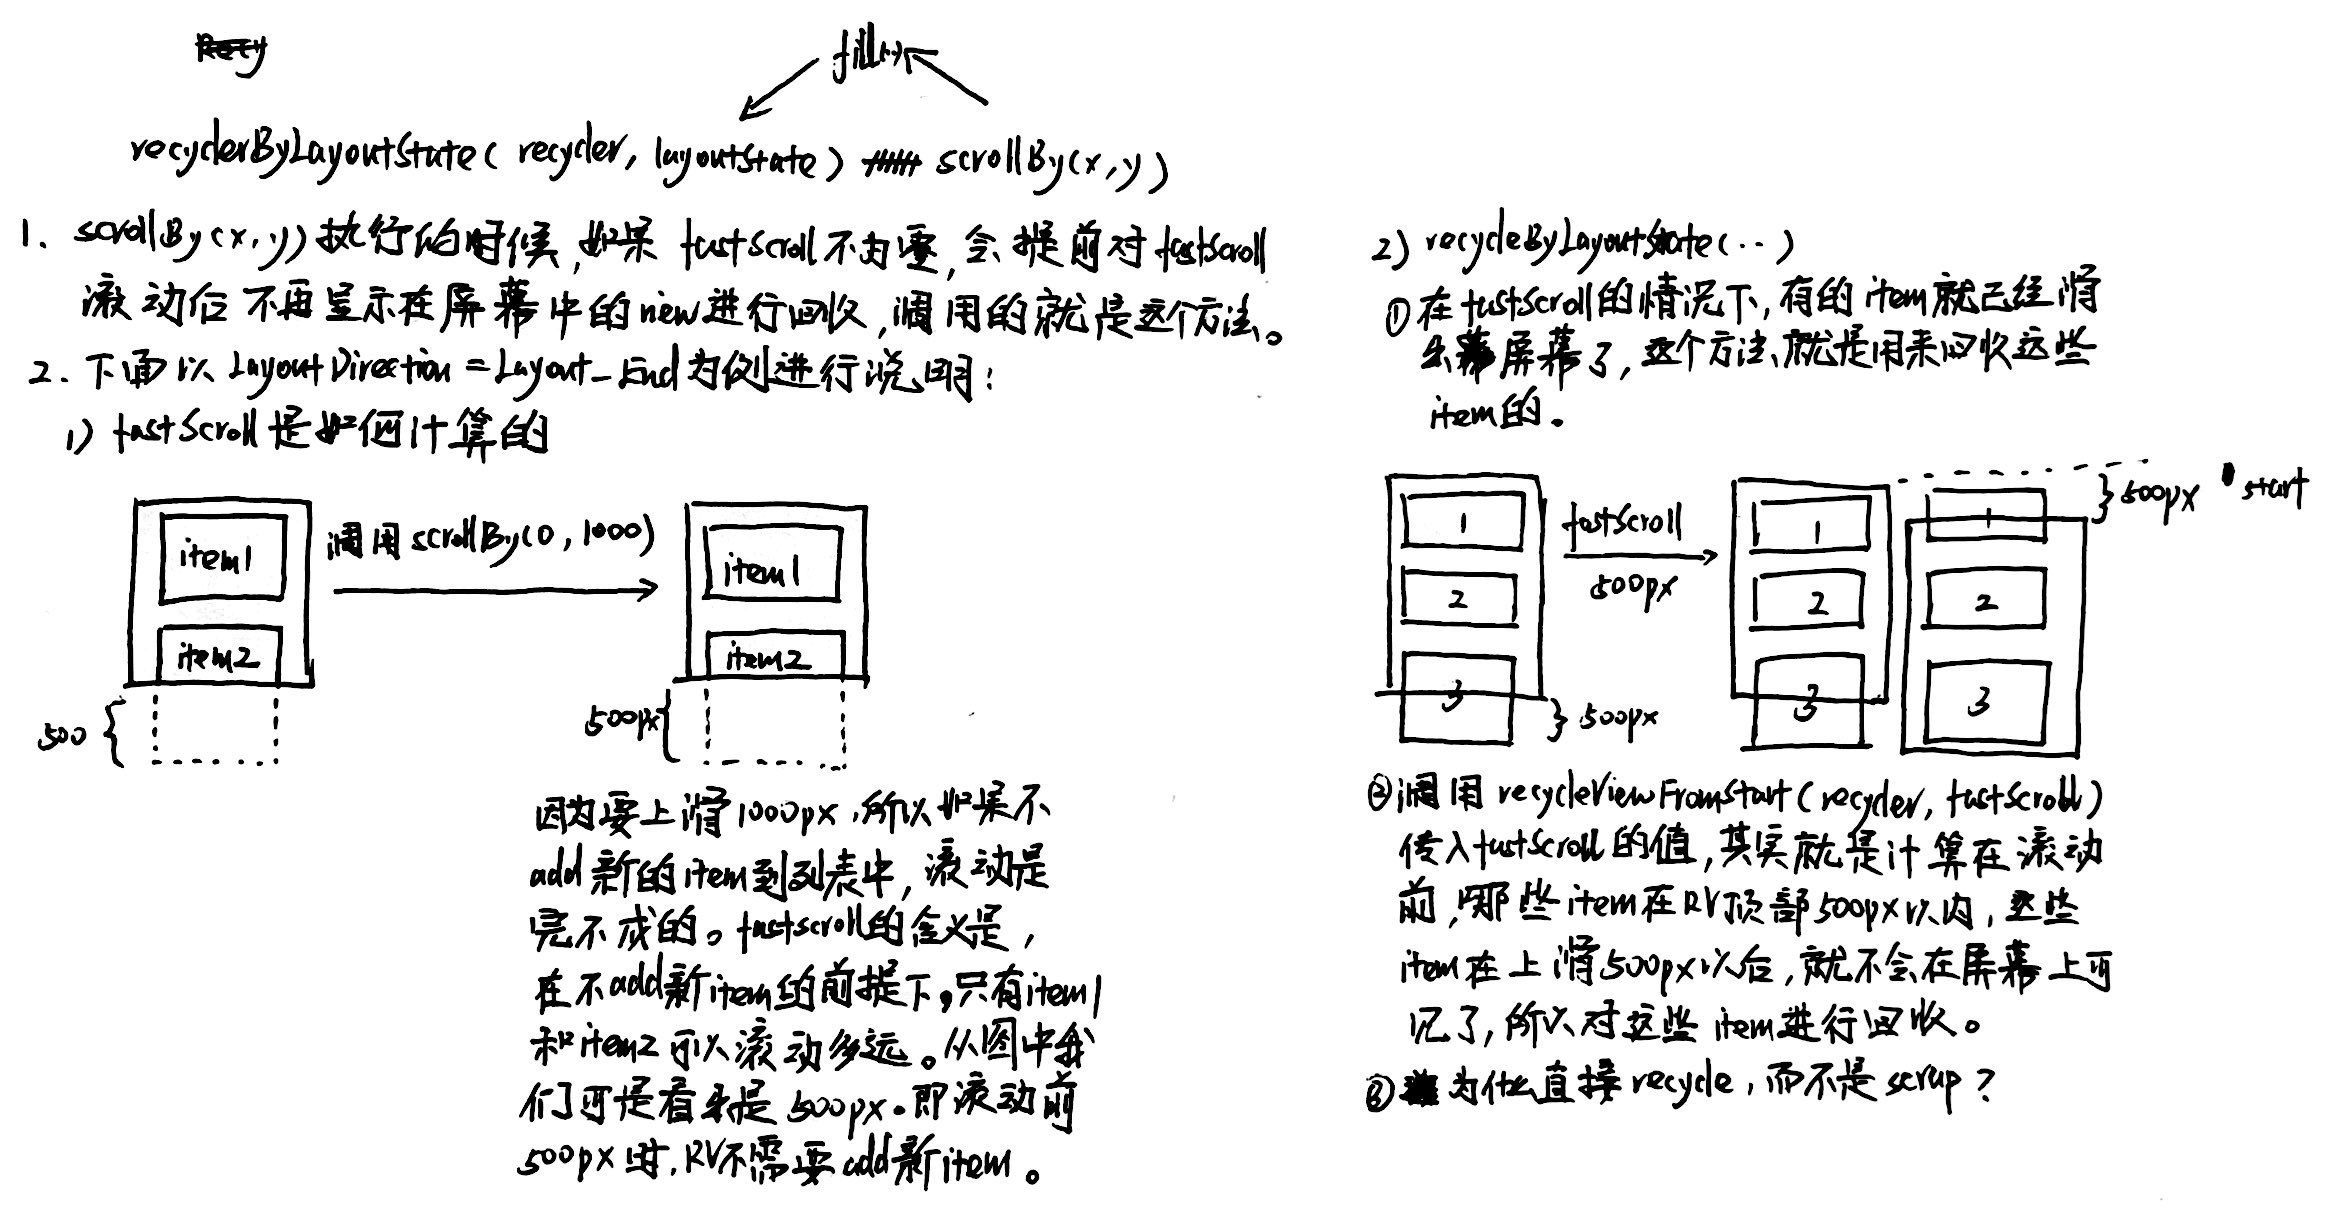 fill(..)
recyclerByLayoutState( recycler, layoutState) scrollBy(x,y)
1. scrollBy(x,y)执行的时候,如果 fastScroll不为零,会提前对fastScroll
滚动后不再显示在屏幕中的new进行回收,调用的就是这个方法。
2. 下面以LayoutDirection = Layout_End为例进行说明:
1) fastScroll是如何计算的
item1
item2
500
调用scrollBy(0,1000)
item1
item2
500px
因为要上滑1000px,所以如果不
add新的item到列表中,滚动是
完不成的。fastscroll的含义是,
在不add新item的前提下,只有item1
和item2可以滚动多远。从图中我
们可是看出是500px。即滚动前
500px时,RV不需要add新item。
2) recycleByLayoutState(..)
①在fastScroll的情况下,有的item就已经滑
出屏幕了,这个方法就是用来回收这些
item的。
1
2
3
500px
fastScroll
500px
1
2
3
1
2
3
500px
start
②调用recycleViewFromStart(recycler, fastScroll)
传入fastScroll的值,其实就是计算在滚动
前,哪些item在RV顶部500px以内,这些
item在上滑500px以后,就不会在屏幕上可
见了,所以对这些item进行回收。
③为什么直接recycle,而不是scrap?